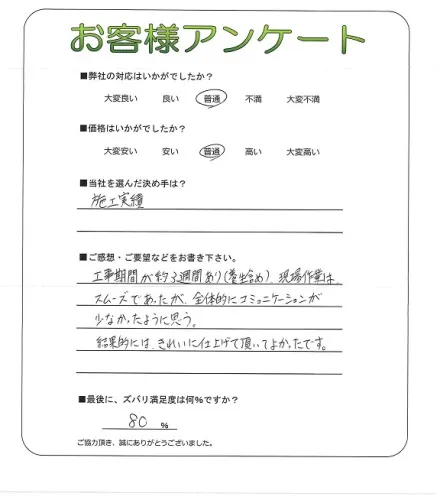 お客様アンケート
■弊社の対応はいかがでしたか?
大変良い 良い 普通 不満 大変不満
■価格はいかがでしたか?
大変安い 安い 普通 高い 大変高い
■当社を選んだ決め手は?
施工実績
■ご感想・ご要望などをお書き下さい。
工事期間が約3週間あり(養生含め)、現場作業は、
スムーズであったが、全体的にコミュニケーションが
少なかったように思う。
結果的には、きれいに仕上げて頂いてよかったです。
■最後に、ズバリ満足度は何%ですか?
80 %
ご協力頂き、誠にありがとうございました。